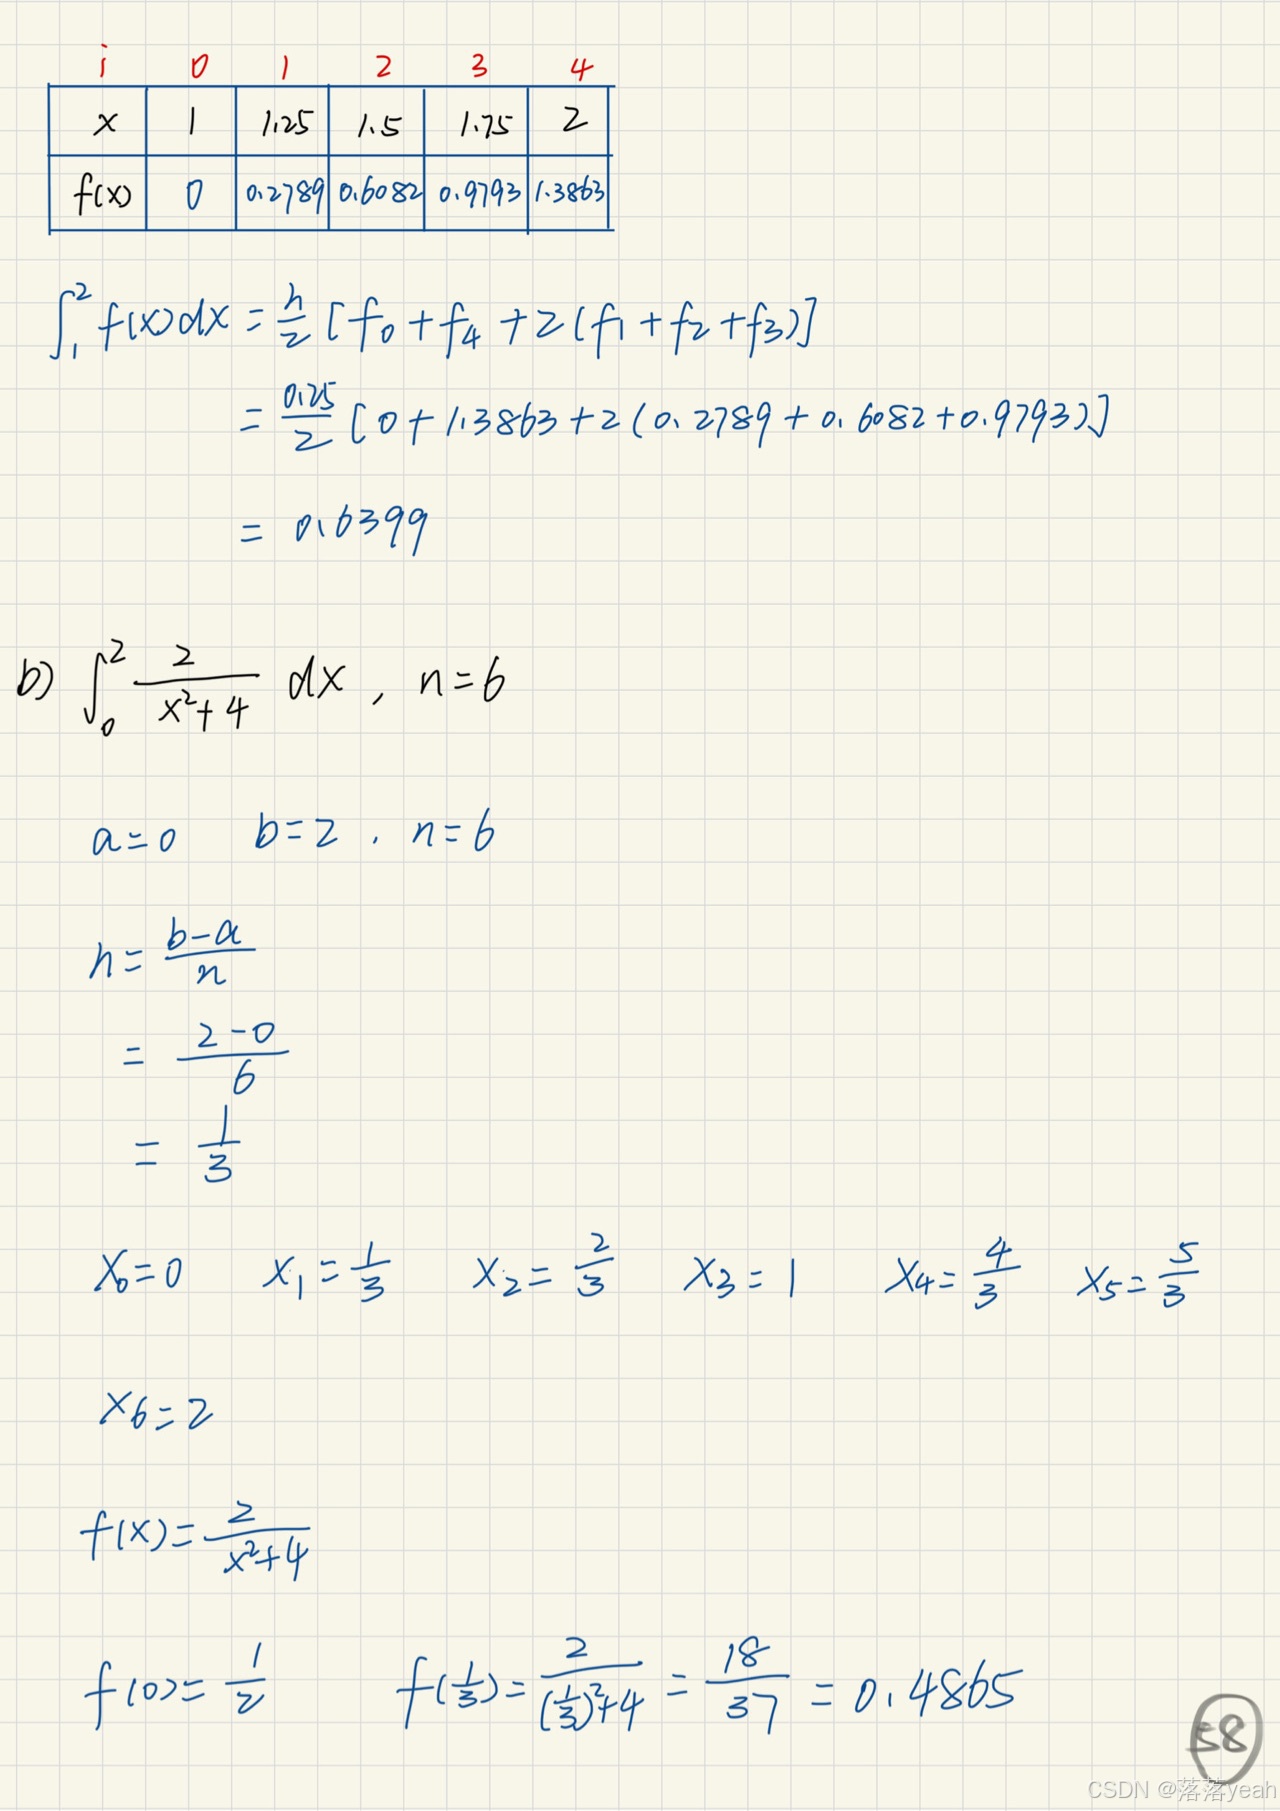 i 0 1 2 3 4
x 1 1.25 1.5 1.75 2
f(x) 0 0.2789 0.6082 0.9793 1.3863
∫₁² f(x)dx = h/2 [f₀ + f₄ + 2(f₁ + f₂ + f₃)]
= 0.25/2 [0 + 1.3863 + 2(0.2789 + 0.6082 + 0.9793)]
= 0.6399
b) ∫₀² 2/(x²+4) dx , n=6
a=0 b=2 , n=6
h = (b-a)/n
= (2-0)/6
= 1/3
x₀=0 x₁=1/3 x₂=2/3 x₃=1 x₄=4/3 x₅=5/3
x₆=2
f(x) = 2/(x²+4)
f(0) = 1/2 f(1/3) = 2/((1/3)²+4) = 18/37 = 0.4865
58
CSDN @落落yeah